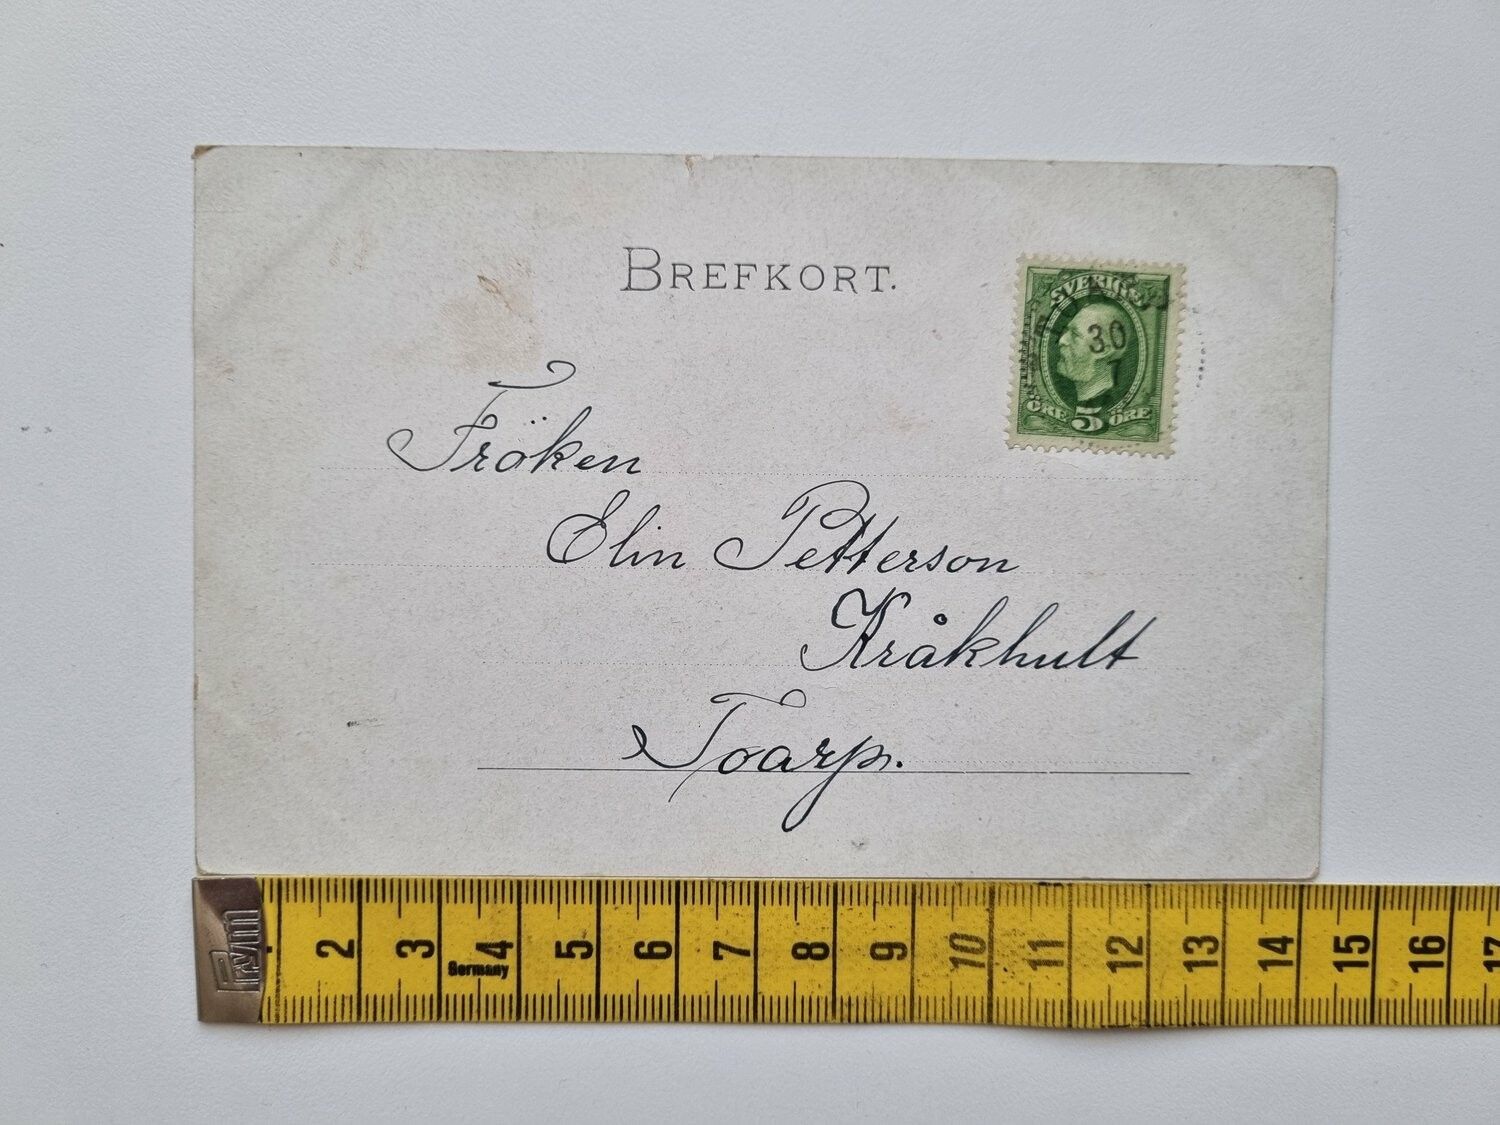 BREFKORT.
SVERIGE
30
7
ÖRE 5 ÖRE
Fröken
Elin Petterson
Kråkhult
Toarp.
Prym
2 3 4 5 6 7 8 9 10 11 12 13 14 15 16 17
Germany